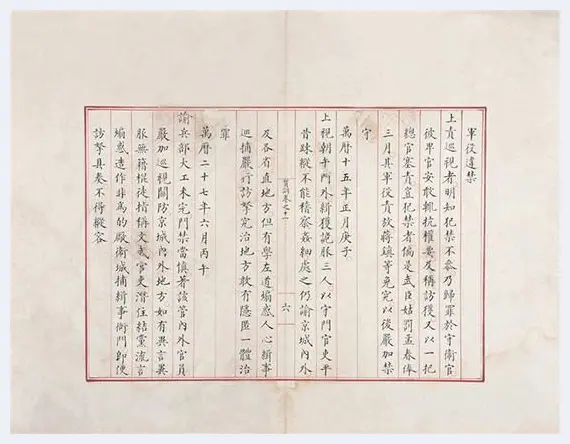 軍役違禁
上責巡視者明知犯禁不叅乃歸罪於守衛官
彼卑官安敢輒抗權要及稱訪獲又以一把
總官塞責豈犯禁者偏是武臣姑罰孟春俸
三月其軍役責放蔣鎮等免究以後嚴加禁
守
萬曆十五年正月庚子
上視朝午門外緝獲詭服三人以守門官吏平
昔踈縱不能稽察姦細處之仍諭京城內外
寶訓卷之十一
六
及各省直地方但有學左道煽惑人心緝事
巡捕嚴行訪拏究治地方敢有隱匿一體治
罪
萬曆二十七年六月丙午
諭兵部大工未完門禁當慎著該管內外官員
嚴加巡視關防京城內外地方如有異言異
服無籍棍徒指稱文武官吏潛住結黨流言
煽惑造作非為的廠衛城捕緝事衙門即便
訪拏具奏不得縱容